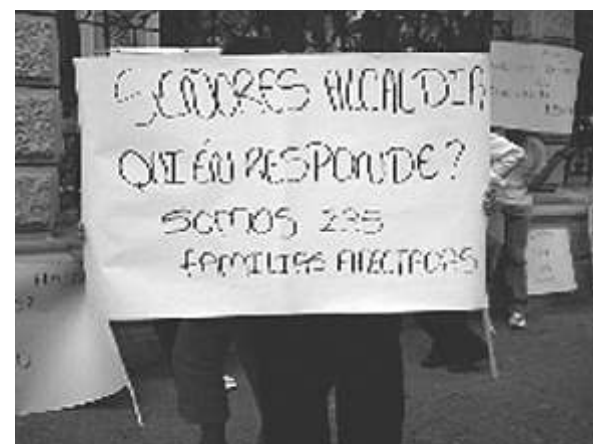 SEÑORES ALCALDIA
QUIÉN RESPONDE?
SOMOS 235
FAMILIAS AFECTADAS